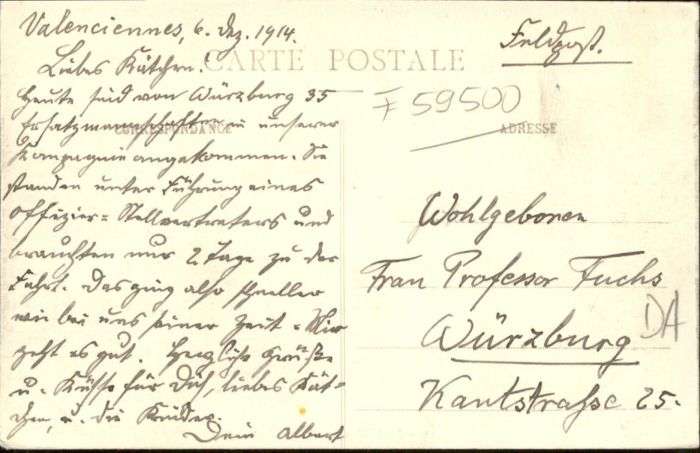 Valenciennes, 6. Dez. 1914.
Liebes Kätchen.
Heute sind von Würzburg 35
Ersatzmannschaften in unserer
Kompagnie angekommen. Sie
standen unter Führung eines
Offizier=Stellvertreters und
brauchten nur 2 Tage zu der
Fahrt. Das ging also schneller
wie bei uns seiner Zeit. Mir
geht es gut. Herzliche Grüße
u. Küsse für Dich, liebes Kät=
chen, u. die Kinder.
Dein Albert
CARTE POSTALE
CORRESPONDANCE
Feldpost.
F 59500
ADRESSE
Wohlgeboren
Frau Professor Fuchs
Würzburg
DA
Kantstrasse 25.